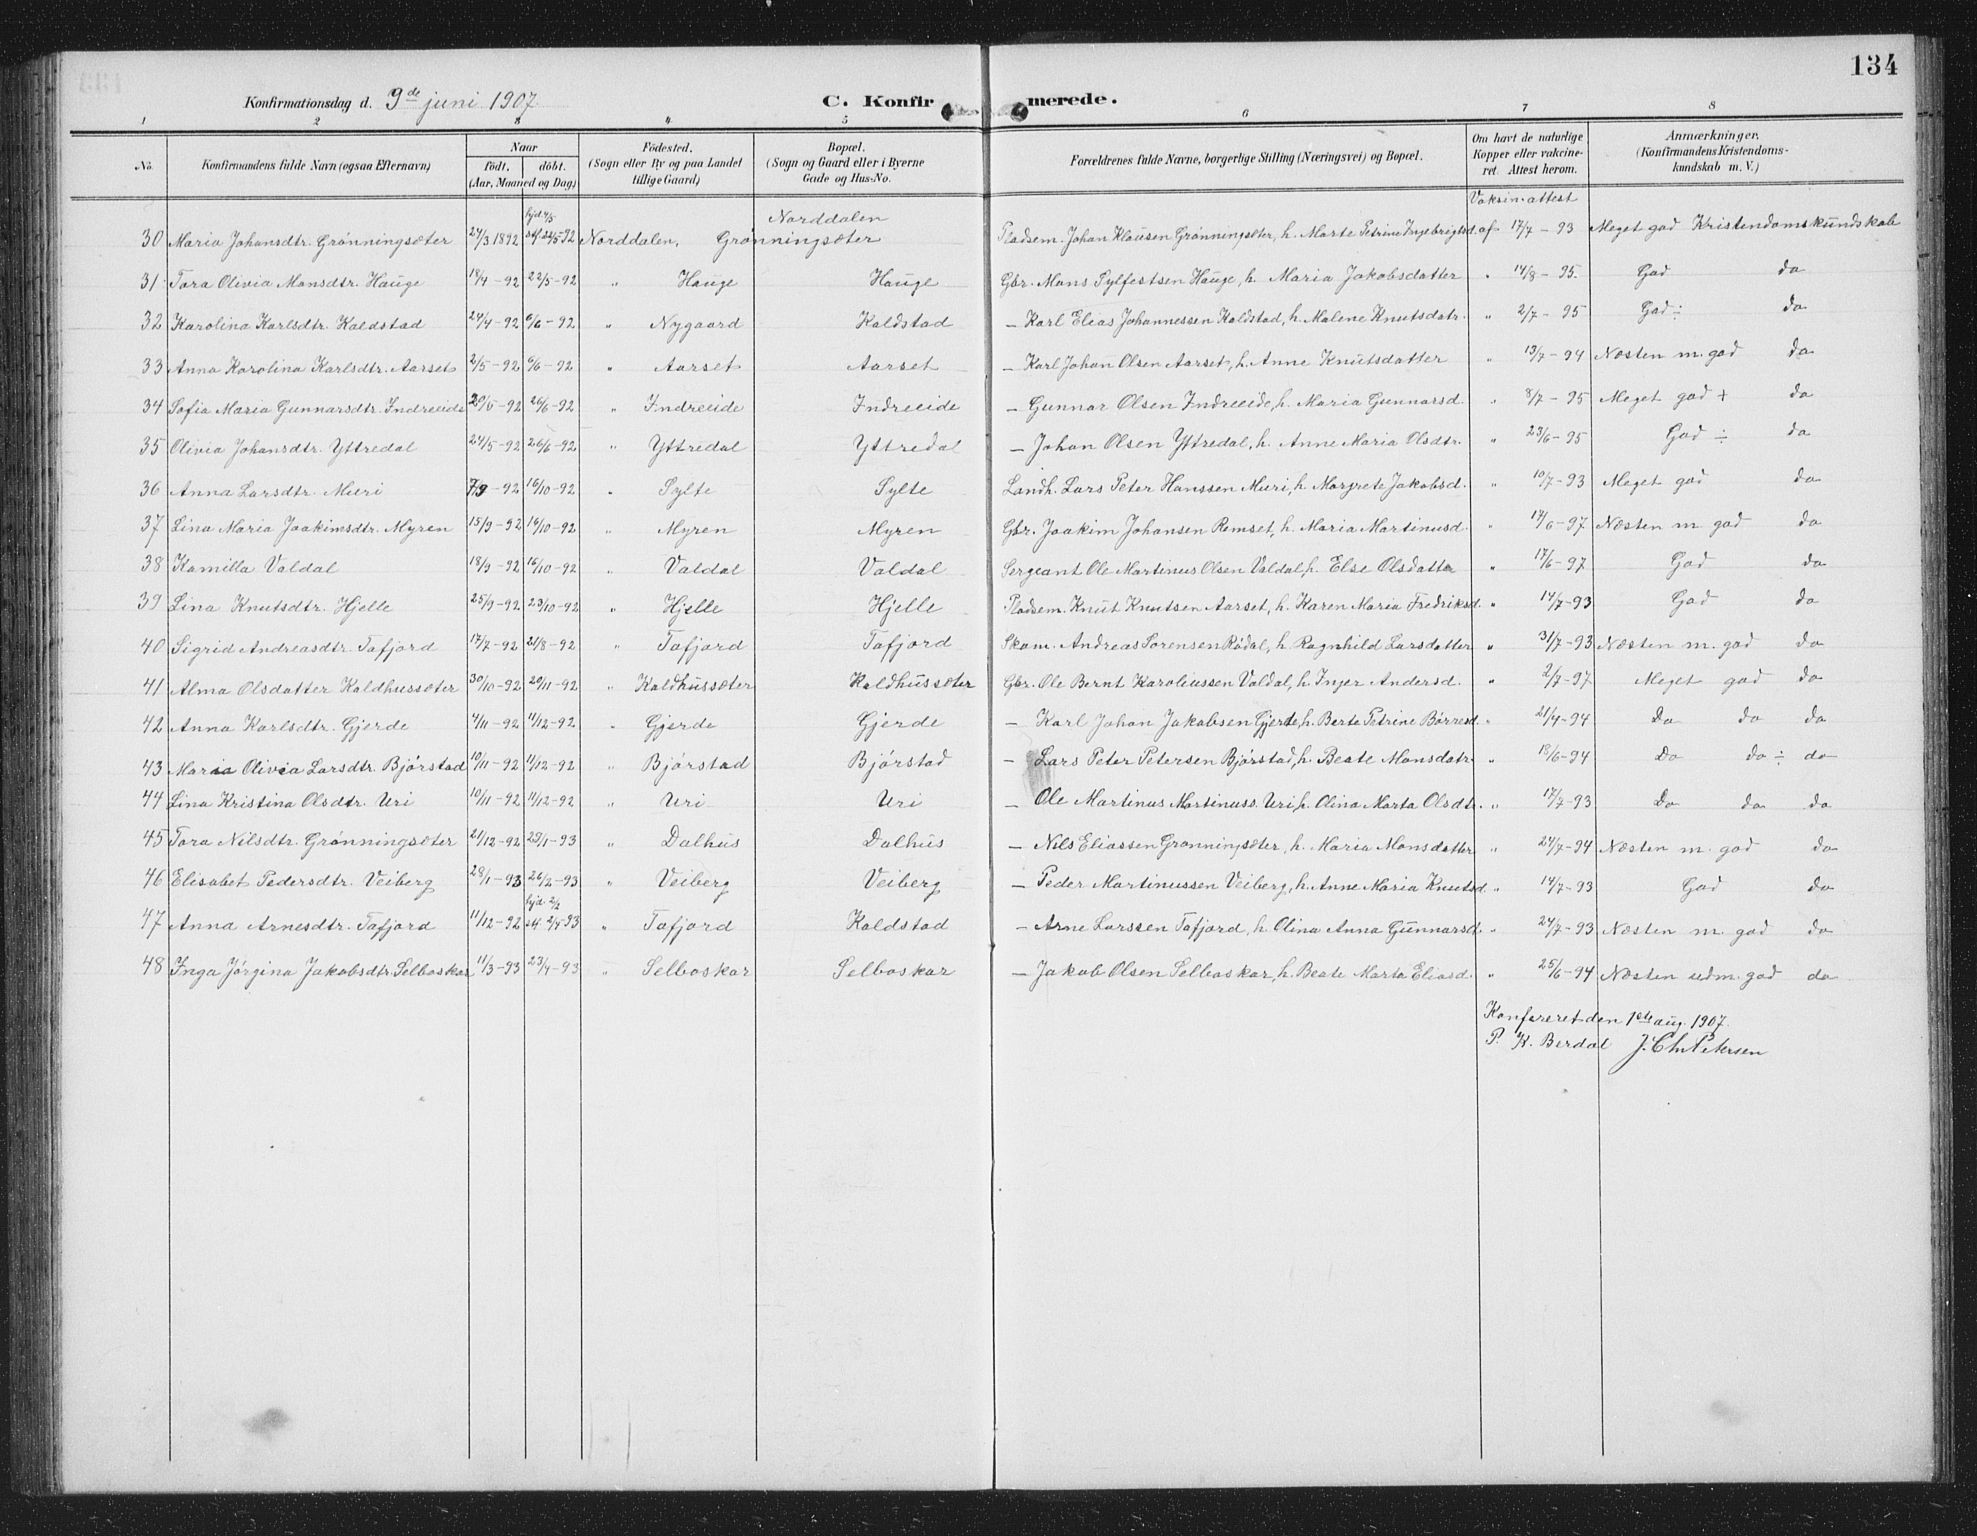 134
Konfirmationsdag d. 9de juni 1907. C. Konfirmerede.
1 2 3 4 5 6 7 8
No. Konfirmandens fulde Navn (ogsaa Efternavn) Naar födt, döbt. (Aar, Maaned og Dag) Födested. (Sogn eller By og paa Landet tillige Gaard) Bopæl. (Sogn og Gaard eller i Byerne Gade og Hus-No. Forældrenes fulde Navne, borgerlige Stilling (Næringsvei) og Bopæl. Om havt de naturlige Kopper eller vakcineret. Attest herom. Anmærkninger. (Konfirmandens Kristendomskundskab m. V.)
Vaksin. attest
hjd. 4/5 Norddalen
30 Maria Johansdtr. Grönningsæter 27/3 1892 stf 22/5-92 Norddalen, Grönningsæter Pladsem. Johan Klausen Grönningsæter, h. Marte Petrine Ingebrigtsd. af 17/7 - 93 Meget god Kristendomskundskab
31 Tora Olivia Monsdtr. Hauge 18/4 - 92 22/5-92 " Hauge Hauge Gbr. Mons Sylfestsen Hauge, h. Maria Jakobsdatter " 14/8 - 95. God do
32 Karolina Karlsdtr. Kaldstad 24/4-92 6/6-92 " Nygaard Kaldstad — Karl Elias Johannessen Kaldstad, h. Malene Knutsdatr. " 2/7 - 95 God ÷ do
33 Anna Karolina Karlsdtr. Aarset 2/5-92 6/6-92 " Aarset Aarset — Karl Johan Olsen Aarset, h. Anne Knutsdatter " 13/7 - 94 Næsten m. god do
34 Sofia Maria Gunnarsdtr. Indreeide 20/5-92 26/6-92 " Indreeide Indreeide — Gunnar Olsen Indreeide, h. Maria Gunnarsd. " 8/7 - 95 Meget god + do
35 Olivia Johansdtr. Yttredal 24/5-92 26/6-92 " Yttredal Yttredal — Johan Olsen Yttredal, h. Anne Maria Olsdtr. " 23/6-95 God ÷ do
36 Anna Larsdtr. Muri 7/9-92 16/10-92 " Sylte Sylte Landh. Lars Peter Hanssen Muri, h. Margrete Jakobsd. " 10/7-93 Meget god do
37 Lina Maria Joakimsdtr. Myren 15/9-92 16/10-92 " Myren Myren Gbr. Joakim Johansen Remset, h. Maria Martinusd. " 17/6-97 Næsten m. god do
38 Kamilla Valdal 18/9-92 16/10-92 " Valdal Valdal Sergeant Ole Martinus Olsen Valdal, h. Else Olsdatter " 17/6-97 God do
39 Lina Knutsdtr. Hjelle 25/9-92 23/10-92 " Hjelle Hjelle Pladsem. Knut Knutsen Aarset, h. Karen Maria Fredriksd. " 14/7-93 God do
40 Sigrid Andreasdtr. Tafjord 17/7-92 21/8-92 " Tafjord Tafjord Skom. Andreas Sorensen Rödal, h. Ragnhild Larsdatter " 31/7-93 Næsten m. god do
41 Alma Olsdatter Kaldhussæter 30/10-92 20/11-92 " Kaldhussæter Kaldhussæter Gbr. Ole Bernt Karoliussen Valdal, h. Inger Andersd. " 2/7-97 Meget god do
42 Anna Karlsdtr. Gjerde 4/11-92 11/12-92 " Gjerde Gjerde — Karl Johan Jakobsen Gjerde, h. Berte Petrine Börresd. " 21/4-94 Do do do
43 Maria Olivia Larsdtr. Bjørstad 10/11-92 11/12-92 " Bjørstad Bjørstad — Lars Peter Petersen Bjørstad, h. Beate Monsdatr. " 18/6-94 Do do ÷ do
44 Lina Kristina Olsdtr. Uri 10/11-92 11/12-92 " Uri Uri — Ole Martinus Martinuss. Uri, h. Olina Marta Olsdtr. " 17/7-93 Do do do
45 Tora Nilsdtr. Grönningsæter 21/12-92 29/1-93 " Dalhus Dalhus — Nils Eliassen Grønningsæter, h. Maria Monsdatter " 24/7-94 Næsten m. god do
46 Elisabet Pedersdtr. Veiberg 28/1-93 26/2-93 " Veiberg Veiberg — Peder Martinussen Veiberg, h. Anne Maria Knutsd. " 14/7-93 God do
hjd. 2/2
47 Anna Arnesdtr. Tafjord 11/12-92 stf 2/4 93 " Tafjord Kaldstad — Arne Larssen Tafjord, h. Olina Anna Gunnarsd. " 24/7-93 Næsten m. god do
48 Inga Jörgina Jakobsdtr. Selboskar 11/3-93 23/4-93 " Selboskar Selboskar — Jakob Olsen Selboskar, h. Beate Marta Eliasd. " 25/6-94 Næsten udm. god do
Konfereret den 1ste aug. 1907.
P. K. Berdal J. Chr Petersen